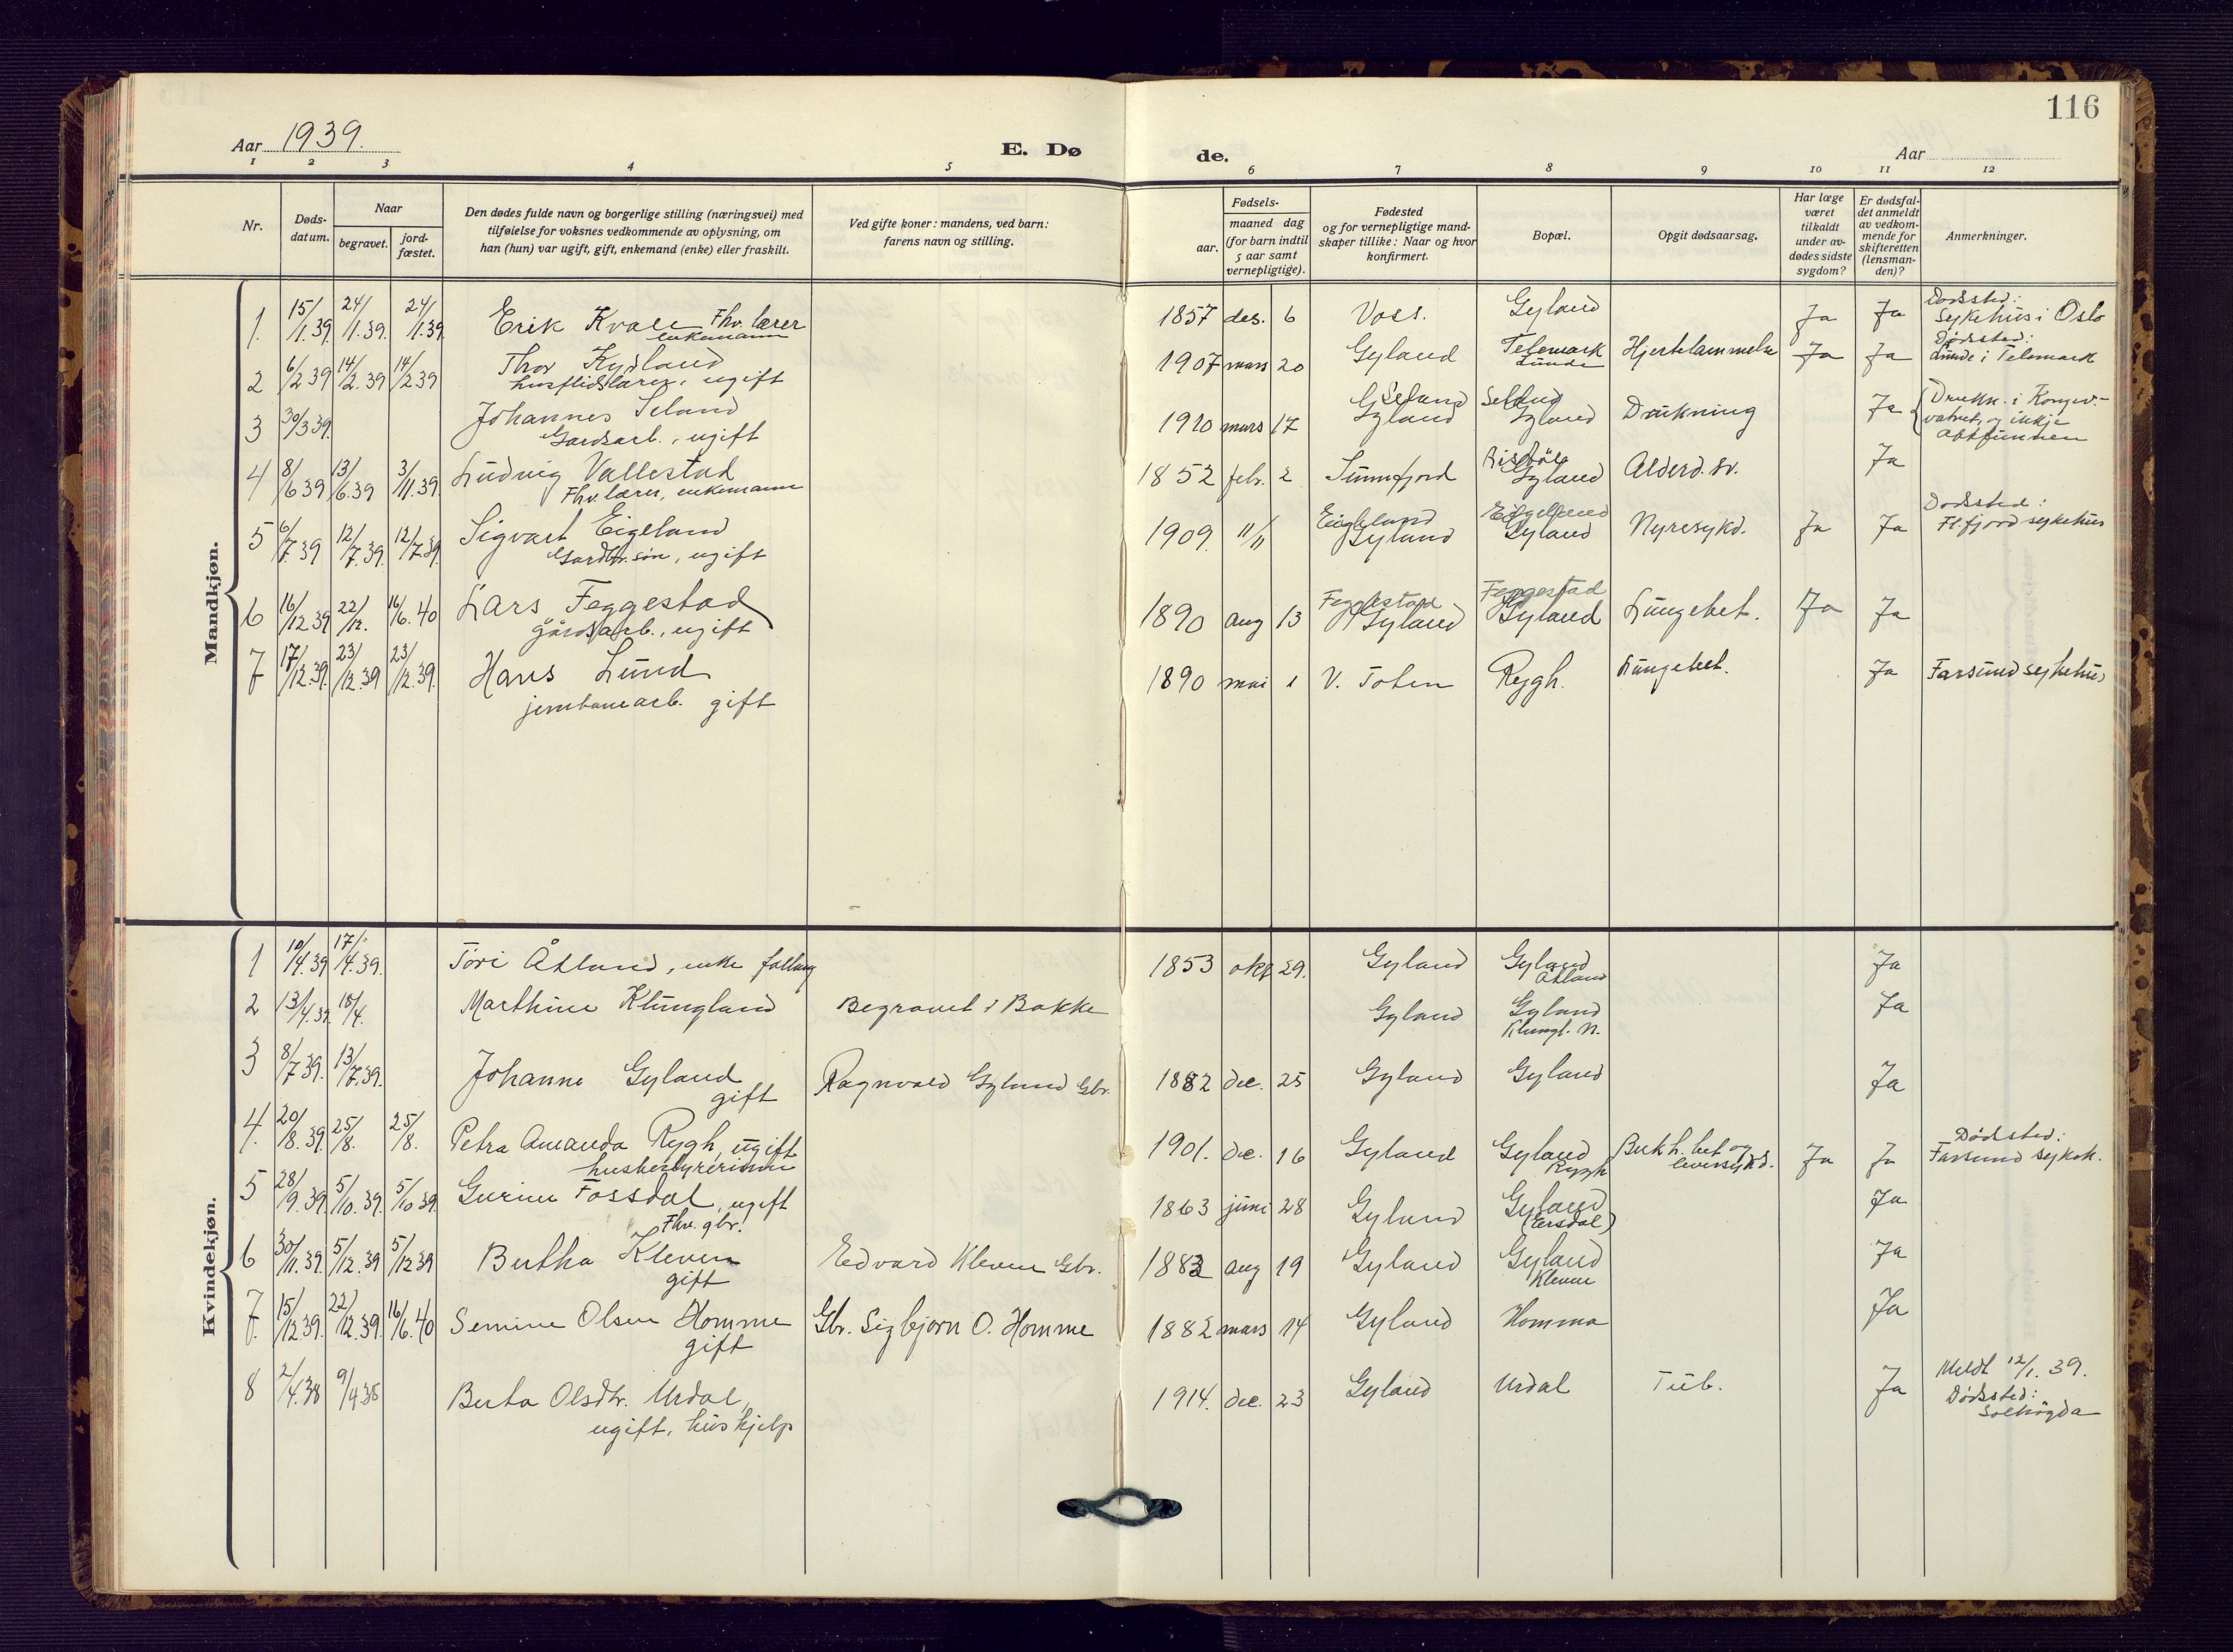 116
Aar 1939.
E. Døde.
Aar
1 2 3 4 5 6 7 8 9 10 11 12
Nr.
Døds-
datum.
Naar
begravet.
jord-
fæstet.
Den dødes fulde navn og borgerlige stilling (næringsvei) med
tilføielse for voksnes vedkommende av oplysning, om
han (hun) var ugift, gift, enkemand (enke) eller fraskilt.
Ved gifte koner: mandens, ved barn:
farens navn og stilling.
Fødsels-
aar.
maaned dag
(for barn indtil
5 aar samt
vernepligtige).
Fødested
og for vernepligtige mand-
skaper tillike: Naar og hvor
konfirmert.
Bopæl.
Opgit dødsaarsag.
Har læge
været
tilkaldt
under av-
dødes sidste
sygdom?
Er dødsfal-
det anmeldt
av vedkom-
mende for
skifteretten
(lensman-
den)?
Anmerkninger.
Mandkjøn.
1 15/1.39. 24/1.39. 24/1.39. Erik Kvale Fhv. lærer 1857 des. 6 Voss. Gyland Ja Ja Dødssted:
enkemann Sykehus i Oslo
2 6/2 39 14/2.39 14/2 39 Thor Kydland 1907 mars 20 Gyland Telemark Hjertelammelse Ja Ja Dødssted:
husflidslærer, ugift Lunde Lunde i Telemark
3 30/3 39. Johannes Seland 1920 mars 17 Seland Gyland Seland Gyland Drukning Ja Drukn. i
Gardsarb., ugift vatnet, og ikkje
attfunnen
4 8/6 39 13/6.39 3/11.39. Ludvig Vallestad 1852 febr. 2 Sunnfjord Gyland Alderd.sv. Ja
Fhv. lærer, enkemann
5 6/7.39 12/7.39. 12/7.39 Sigvart Eigeland 1909. 11/11 Eigeland Gyland Eigeland Gyland Nyresykd. Ja Ja Dødssted:
Gardbr.søn, ugift Fl.fjord sykehus
6 16/12 39 22/12. 16/6.40 Lars Feggestad 1890 aug 13 Feggestad Gyland Feggestad Gyland Lungebet. Ja Ja
gårdsarb., ugift
7 17/12.39. 23/12.39 23/12.39. Hans Lund 1890 mai 1 V. Toten Rygh. Lungebet. Ja Farsund sykehus
jernbanearb. gift
Kvindekjøn.
1 10/4.39 17/4.39. Tori Åtland, enke 1853 okt. 29. Gyland Gyland Ja
Åtland
2 13/4.39. 18/4. Marthine Klungland Begravet i Bakke Gyland Gyland Ja
Klungl. N.
3 8/7 39. 13/7.39. Johanne Gyland Ragnvald Gyland Gbr. 1882 dec. 25 Gyland Gyland Ja
gift
4. 20/8.39 25/8. 25/8. Petra Amanda Rygh, ugift 1901. dec. 16 Gyland Gyland Bukh.bet og Ja Ja Dødssted:
husbestyrerinne Rygh leversykd. Farsund sykeh.
5 28/9.39. 5/10.39. 5/10 39 Gurine Fossdal, ugift 1863 juni 28 Gyland Gyland Ja
Fhv. gbr. (Ersdal)
6 30/11.39. 5/12.39 5/12 39 Bertha Kleven Edvard Kleven Gbr. 1883 aug 19 Gyland Gyland Ja
gift Kleven
7. 15/12 39. 22/12.39. 16/6.40 Semine Olsen Homme Gbr. Sigbjørn O. Homme 1882 mars 14 Gyland Homma Ja
gift
8 2/4.38 9/4.38 Berta Olsdtr. Urdal, 1914. dec. 23 Gyland Urdal Tub. Ja Meldt 12/1.39.
ugift, hushjelp Dødssted:
Solhøgda